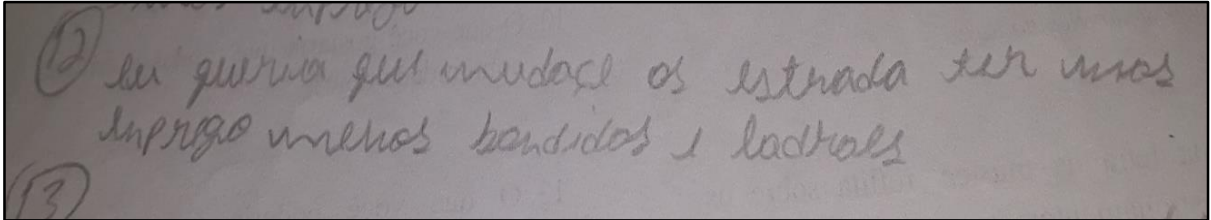 12 eu queria que mudaçe os estrada ter mas
enprego menos bandidos e ladroes
13